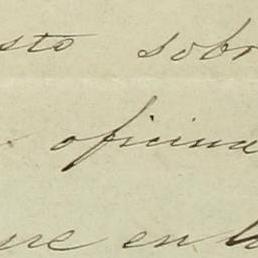 sto sobr
oficina
re en l